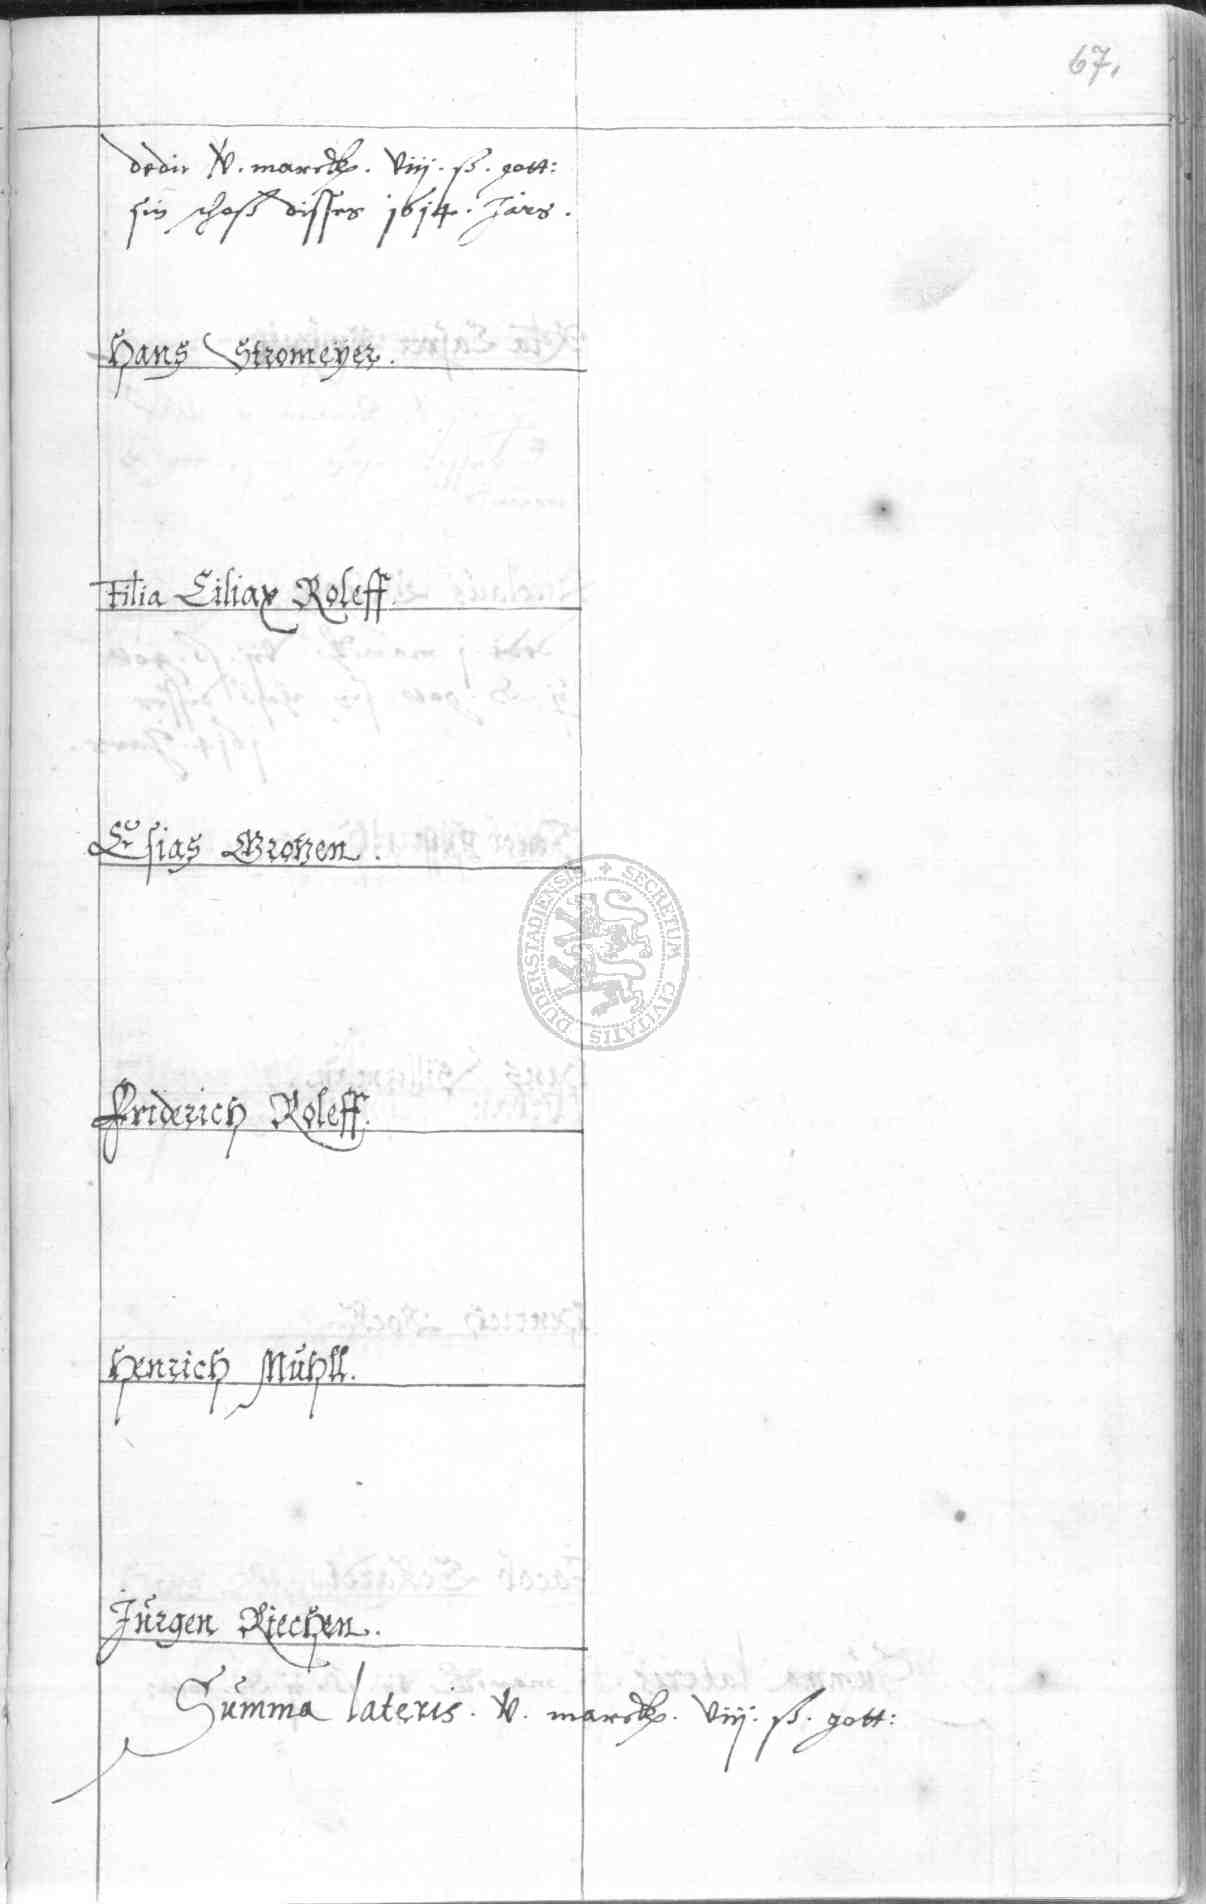 67.
dedit V. marck. viij. ß. gott:
sin schoß disses 1614. Jars.
Hans Stromeyer.
Filia Ciliax Roleff.
Esias Grotzen.
SECRETUM CIVITATIS DUDERSTADIENSIS
Friderich Roleff.
Henrich Mühll.
Jürgen Riechen.
Summa lateris. V. marck. viij. ß. gott: